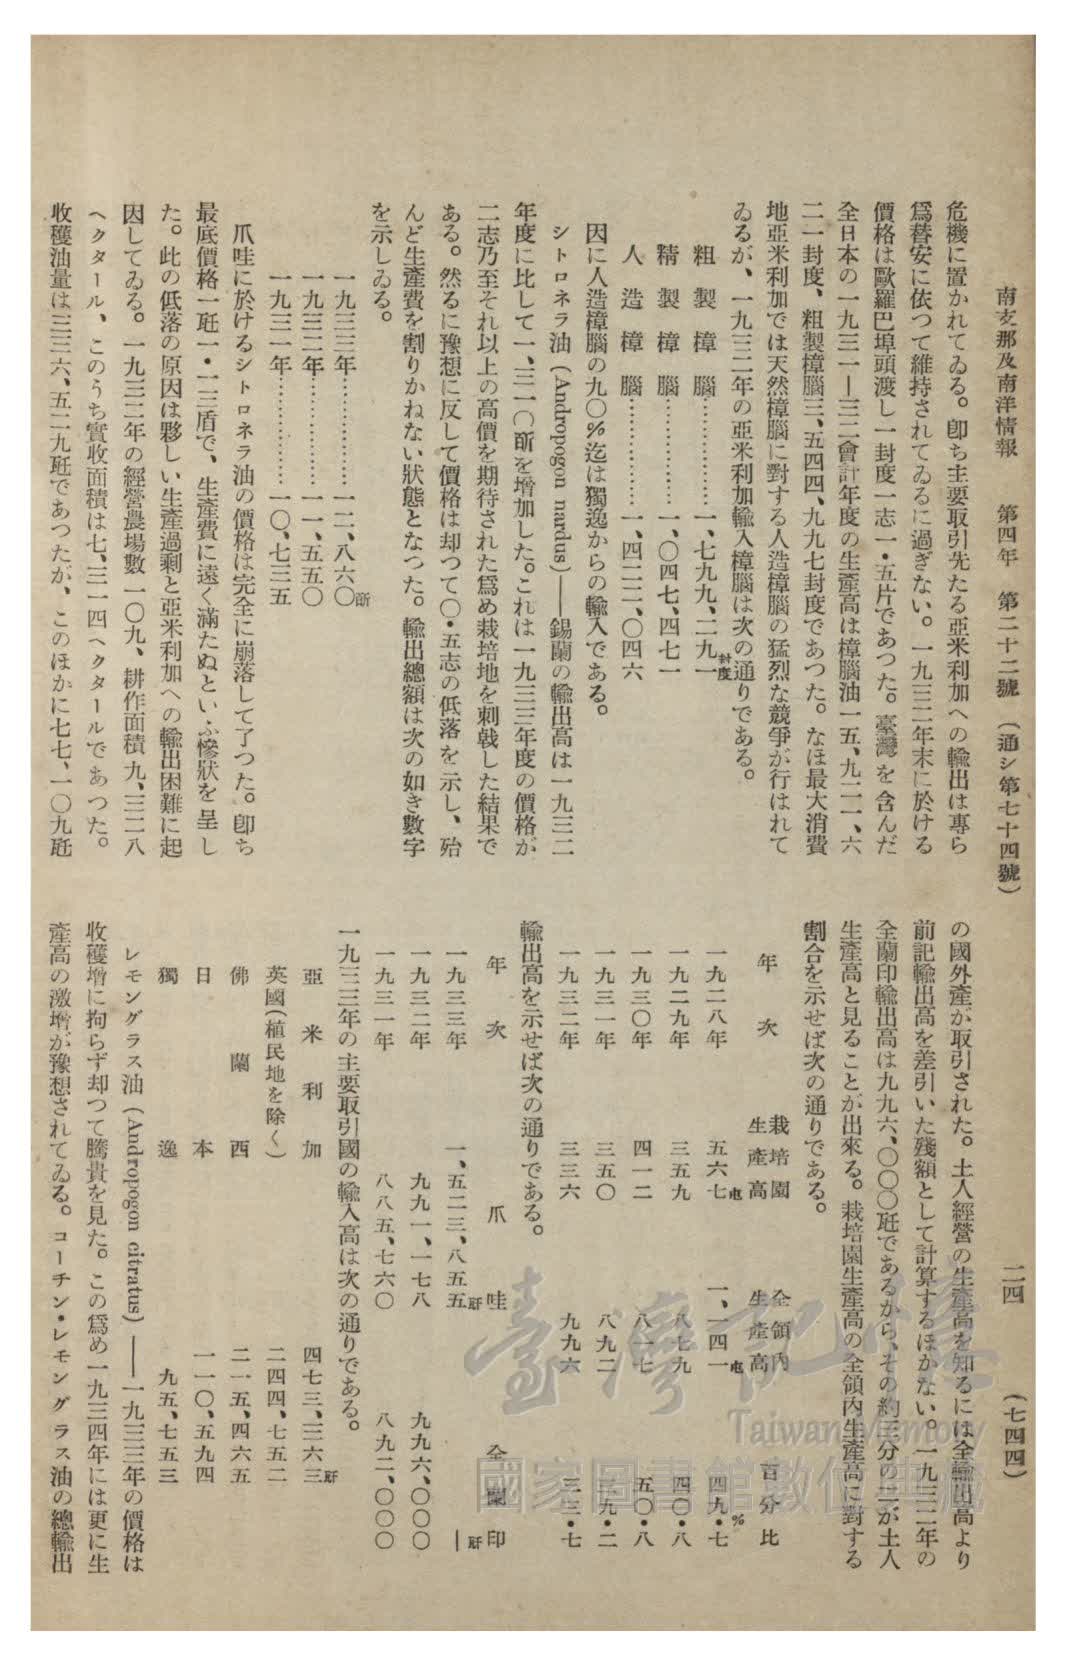 南支那及南洋情報　第四年　第二十二號　（通シ第七十四號）　二四　（七四四）
危機に置かれてゐる。卽ち主要取引先たる亞米利加への輸出は專ら
爲替安に依つて維持されてゐるに過ぎない。一九三二年末に於ける
價格は歐羅巴埠頭渡し一封度一志一・五片であつた。臺灣を含んだ
全日本の一九三一―三二會計年度の生產高は樟腦油一五、九二一、六
二一封度、粗製樟腦三、五四四、九九七封度であつた。なほ最大消費
地亞米利加では天然樟腦に對する人造樟腦の猛烈な競爭が行はれて
ゐるが、一九三二年の亞米利加輸入樟腦は次の通りである。
粗製樟腦…………一、七九九、二九一封度
精製樟腦…………一、〇四七、四七一
人造樟腦…………一、四二二、〇四六
因に人造樟腦の九〇％迄は獨逸からの輸入である。
シトロネラ油（Andropogon nardus）――錫蘭の輸出高は一九三二
年度に比して一、三一〇斤を增加した。これは一九三三年度の價格が
二志乃至それ以上の高價を期待された爲め栽培地を刺戟した結果で
ある。然るに豫想に反して價格は却つて〇・五志の低落を示し、殆
んど生產費を割りかねない狀態となつた。輸出總額は次の如き數字
を示しゐる。
一九三三年…………一二、八六〇
一九三二年…………一一、五五〇
一九三一年…………一〇、七三五
爪哇に於けるシトロネラ油の價格は完全に崩落して了つた。卽ち
最底價格一瓩一・一三盾で、生產費に遠く滿たぬといふ慘狀を呈し
た。此の低落の原因は夥しい生產過剩と亞米利加への輸出困難に起
因してゐる。一九三二年の經營農場數一〇九、耕作面積九、三二八
ヘクタール、このうち實收面積は七、三一四ヘクタールであつた。
收穫油量は三三六、五二九瓩であつたが、このほかに七七、一〇九瓩
の國外產が取引された。土人經營の生產高を知るには全輸出高より
前記輸出高を差引いた殘額として計算するほかない。一九三二年の
全蘭印輸出高は九九六、〇〇〇瓩であるから、その約三分の二が土人
生產高と見ることが出來る。栽培園生產高の全領內生產高に對する
割合を示せば次の通りである。
年次　栽培園生產高　全領內生產高　百分比
一九二八年　五六七屯　一、一四一屯　四九・七％
一九二九年　三五九　八七九　四〇・八
一九三〇年　四一二　八一七　五〇・八
一九三一年　三五〇　八九二　三九・二
一九三二年　三三六　九九六　三三・七
輸出高を示せば次の通りである。
年次　爪哇　全蘭印
一九三三年　一、五二三、八五五瓩　―瓩
一九三二年　九九一、一七八　九九六、〇〇〇
一九三一年　八八五、七六〇　八九二、〇〇〇
一九三三年の主要取引國の輸入高は次の通りである。
亞米利加　四七三、三六三瓩
英國（植民地を除く）　二四四、七五二
佛蘭西　二一五、四六五
日本　一一〇、五九四
獨逸　九五、七五三
レモングラス油（Andropogon citratus）――一九三三年の價格は
收穫增に拘らず却つて騰貴を見た。この爲め一九三四年には更に生
產高の激增が豫想されてゐる。コーチン・レモングラス油の總輸出
臺灣記憶
Taiwan Memory
國家圖書館數位典藏